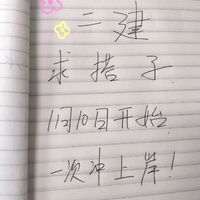 二建
求搭子
11月10日开始
一次冲上岸！